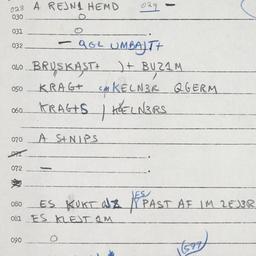 028 A REJN1 HEMD 029 —
030 O
031 O
032 — QGL UMBAJT+
040 BRUSKAST+ )+ BUZ1M
050 KRAG+ KELN3R QGERM
060 KRAGTS | KELN3RS
070 A S+NIPS
072 —
080 ES KUKT ES PAST AF IM ZEJ3R
081 ES KLEJT 1M
090 O